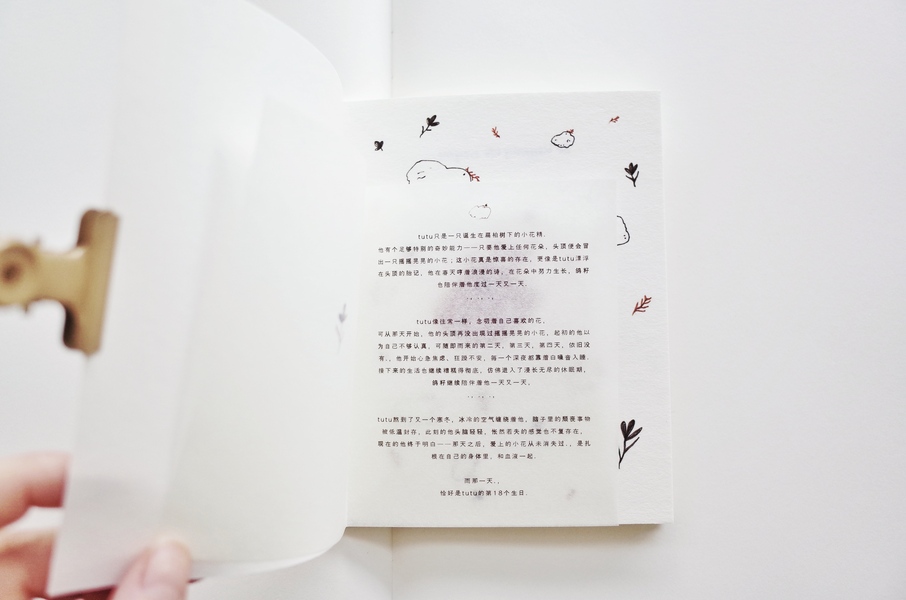 tutu只是一只诞生在扁松树下的小花精.
他有个足够特别的奇妙能力——只要他爱上任何花朵, 头顶便会冒
出一只摇摇晃晃的小花；这小花真是惊喜的存在, 更像是tutu漂浮
在头顶的胎记, 他在春天哼着浪漫的诗, 在花朵中努力生长, 鸽籽
也陪伴着他度过一天又一天.
tutu像往常一样, 念叨着自己喜欢的花,
可从那天开始, 他的头顶再没出现过摇摇晃晃的小花, 起初的他以
为自己不够认真, 可随即而来的第二天, 第三天, 第四天, 依旧没
有., 他开始心急焦虑, 狂躁不安, 每一个深夜都靠着白噪音入睡.
接下来的生活也继续糟糕得彻底, 仿佛进入了漫长无尽的休眠期,
鸽籽继续陪伴着他一天又一天,
tutu熬到了又一个寒冬, 冰冷的空气缠绕着他, 脑子里的颓废事物
被低温封存, 此刻的他头脑轻轻, 怅然若失的感觉也不复存在,
现在的他终于明白——那天之后, 爱上的小花从未消失过., 是扎
根在自己的身体里, 和血液一起.
而那一天.,
恰好是tutu的第18个生日.